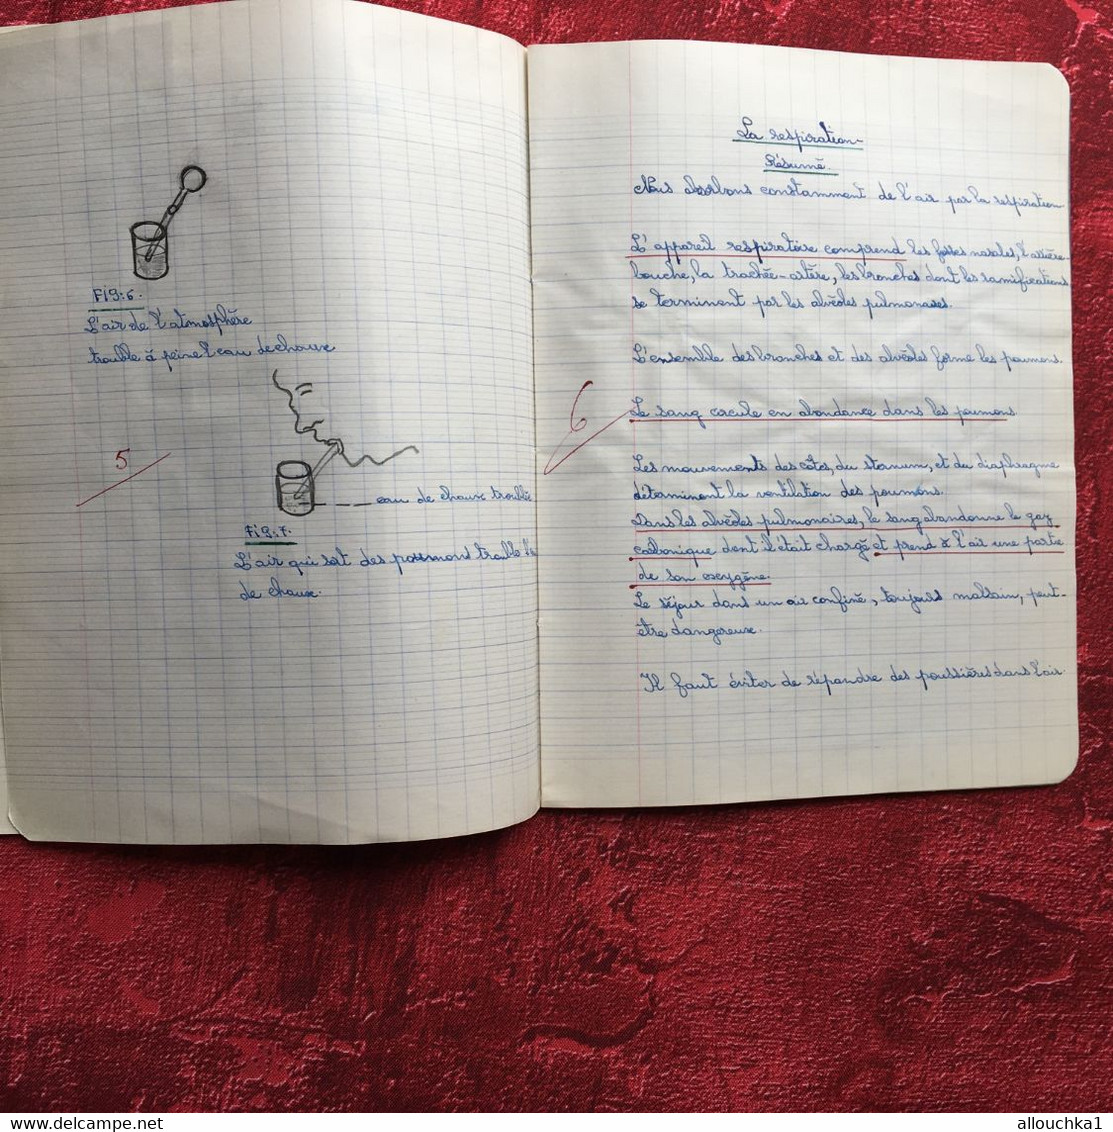 FIG:6.
L'air de l'atmosphère
trouble à peine l'eau de chaux
5
eau de chaux troublée
FIG.7.
L'air qui sort des poummons trouble l'
de chaux.
La respiration
Résumé
Nous absorbons constamment de l'air par la respiration
L'appareil respiratoire comprend les fosses nasales, l'arrière-
bouche, la trachée-artère, les bronches dont les ramifications
se terminent par les alvéoles pulmonaires.
L'ensemble des bronches et des alvéoles forme les poumons.
6
Le sang circule en abondance dans les poumons.
Les mouvements des côtes, du sternum, et du diaphragme
déterminent la ventilation des poumons.
Dans les alvéoles pulmonaires, le sang abandonne le gaz
carbonique dont il était chargé et prend à l'air une partie
de son oxygène.
Le séjour dans un air confiné, toujours malsain, peut-
être dangereux.
Il faut éviter de répandre des poussières dans l'air.
delcampe.net
allouchka1